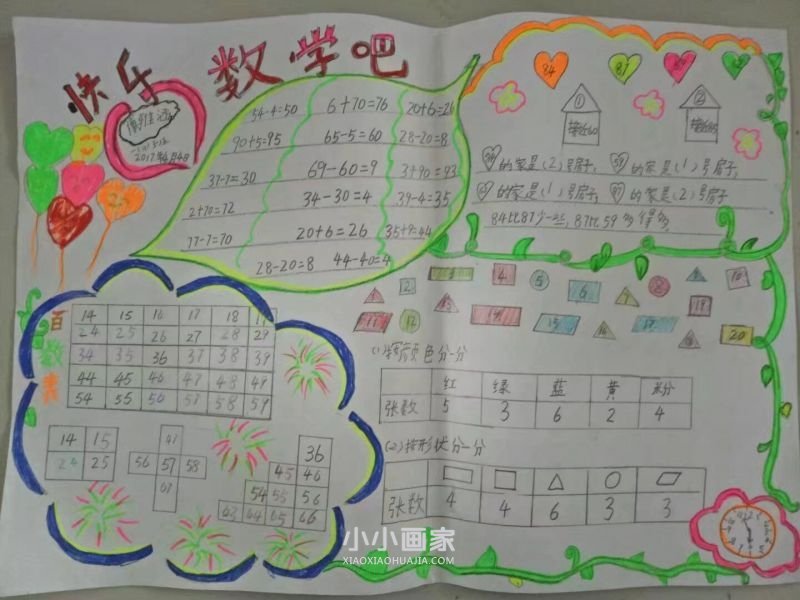 快乐 数学吧
2017年4月4日
54-4=50 6+70=76 20+6=26
90+5=95 65-5=60 28-20=8
37-7=30 69-60=9 3+90=93
2+70=72 34-30=4 39-4=35
77-7=70 20+6=26 35+9=44
28-20=8 44-40=4
84 87
① ②
接近60
的家是(2)号房子, 的家是(1)号房子,
的家是(1)号房子, 的家是(2)号房子
84比87少一些, 87比59多得多
百数表
14 15 16 17 18 19
24 25 26 27 28 29
34 35 36 37 38 39
44 45 46 47 48 49
54 55 56 57 58 59
14 15
24 25
47
56 57 58
67
36
45 46
54 55 56
63 64 65 66
1 2 3 4 5 6 7 8 9 10
11 12 13 14 15 16 17 18 19 20
(1)按颜色分一分
红 绿 蓝 黄
张数 5 3 6 2 4
(2)按形状分一分
张数 4 4 6 3 3
小小画家
XIAOXIAOHUAJIA.COM